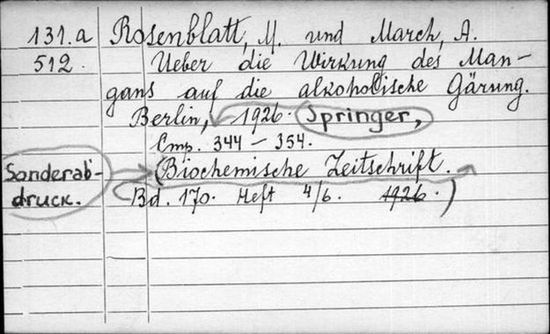 131.a Rosenblatt, M. und March, A.
512. Ueber die Wirkung des Man-
gans auf die alkoholische Gärung.
Berlin, 1926. Springer,
Стр. 344 – 354.
Sonderab-
druck.
(Biochemische Zeitschrift.
Bd. 170. Heft 4/6. 1926.)